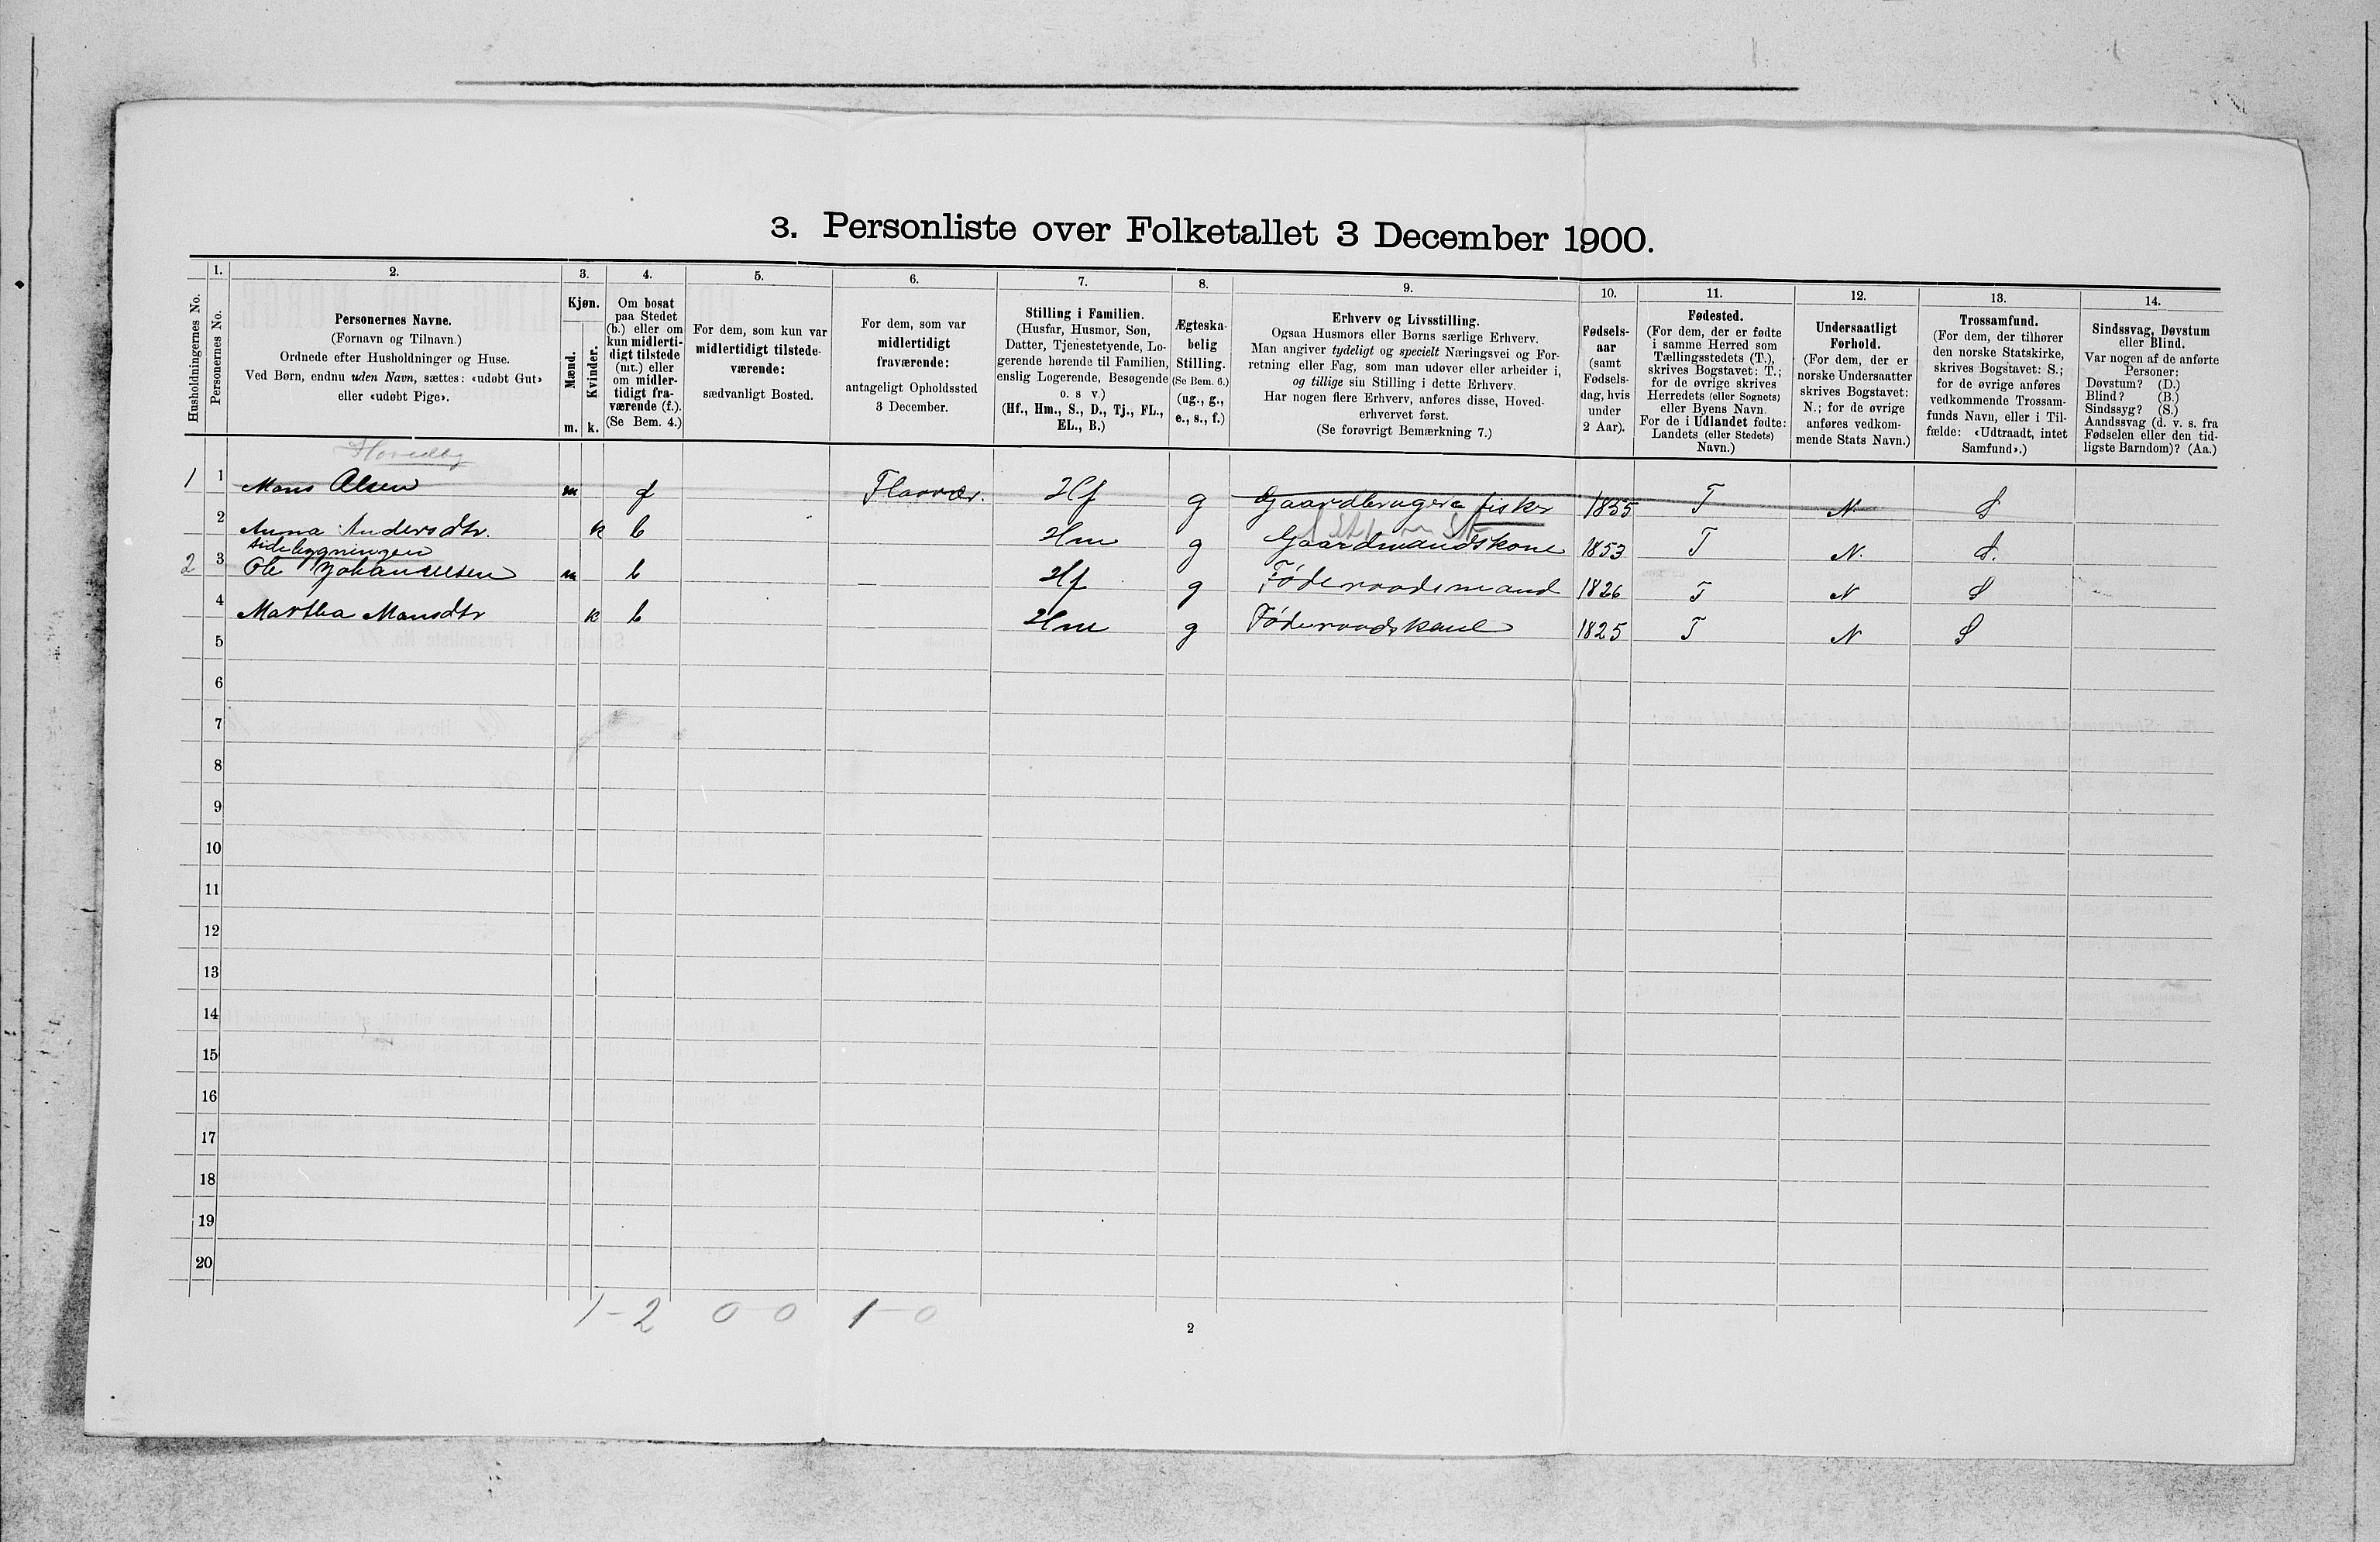 3. Personliste over Folketallet 3 December 1900.
1. 2. 3. 4. 5. 6. 7. 8. 9. 10. 11. 12. 13. 14.
Husholdningernes No.
Personernes No.
Personernes Navne.
(Fornavn og Tilnavn.)
Ordnede efter Husholdninger og Huse.
Ved Børn, endnu uden Navn, sættes: «udøbt Gut»
eller «udøbt Pige».
Kjøn.
Mænd.
Kvinder.
m. k.
Om bosat
paa Stedet
(b.) eller om
kun midlerti-
digt tilstede
(mt.) eller
om midler-
tidigt fra-
værende (f.).
(Se Bem. 4.)
For dem, som kun var
midlertidigt tilstede-
værende:
sædvanligt Bosted.
For dem, som var
midlertidigt
fraværende:
antageligt Opholdssted
3 December.
Stilling i Familien.
(Husfar, Husmor, Søn,
Datter, Tjenestetyende, Lo-
gerende hørende til Familien,
enslig Logerende, Besøgende
o. s v.)
(Hf., Hm., S., D., Tj., FL.,
EL., B.)
Ægteska-
belig
Stilling.
(Se Bem. 6.)
(ug., g.,
e., s., f.)
Erhverv og Livsstilling.
Ogsaa Husmors eller Børns særlige Erhverv.
Man angiver tydeligt og specielt Næringsvei og For-
retning eller Fag, som man udøver eller arbeider i,
og tillige sin Stilling i dette Erhverv.
Har nogen flere Erhverv, anføres disse, Hoved-
erhvervet først.
(Se forøvrigt Bemærkning 7.)
Fødsels-
aar
(samt
Fødsels-
dag, hvis
under
2 Aar).
Fødested.
(For dem, der er fødte
i samme Herred som
Tællingsstedets (T.),
skrives Bogstavet: T.;
for de øvrige skrives
Herredets (eller Sognets)
eller Byens Navn.
For de i Udlandet fødte:
Landets (eller Stedets)
Navn.)
Undersaatligt
Forhold.
(For dem, der er
norske Undersaatter
skrives Bogstavet:
N.; for de øvrige
anføres vedkom-
mende Stats Navn.)
Trossamfund.
(For dem, der tilhører
den norske Statskirke,
skrives Bogstavet: S.;
for de øvrige anføres
vedkommende Trossam-
funds Navn, eller i Til-
fælde: «Udtraadt, intet
Samfund».)
Sindssvag, Døvstum
eller Blind.
Var nogen af de anførte
Personer:
Døvstum? (D.)
Blind? (B.)
Sindssyg? (S.)
Aandssvag (d. v. s. fra
Fødselen eller den tid-
ligste Barndom)? (Aa.)
Hovedbg
1 1 Mons Olsen m f Flaavær. Hf g Gaardbruger & fisker 1855 T N S
2 Anna Andersdtr. k b Hm g Gaardmandskone 1853 T N. S.
Sidebygningen
2 3 Ole Johannesen m b Hf g Føderaadsmand 1826 T N S
4 Martha Monsdtr k b Hm g Føderaadskone 1825 T N S
5
6
7
8
9
10
11
12
13
14
15
16
17
18
19
20
1-2 0-0 1-0
2